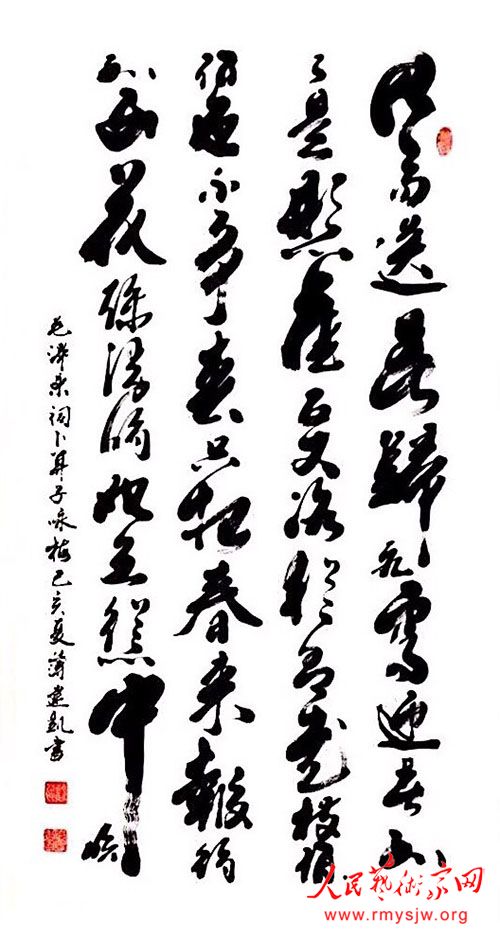 风雨送春歸飛雪迎春到
已是懸崖百丈冰猶有花枝俏
俏也不争春只把春来報待
到山花爛漫時她在叢中笑
毛泽东词卜算子咏梅己亥夏薄建凯書
人民藝術家网
www.rmysjw.org